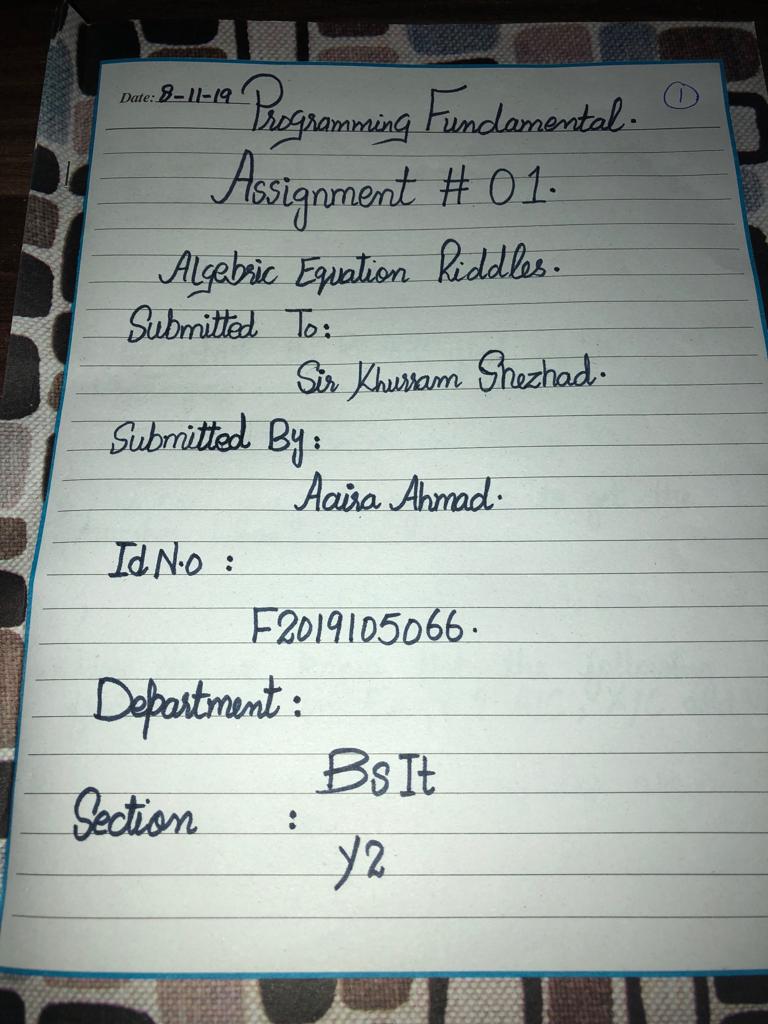 Date: 8-11-19 Programming Fundamental. 1
Assignment # 01.
Algebric Equation Riddles.
Submitted To:
Sir Khurram Shezhad.
Submitted By:
Aaira Ahmad.
Id N.o :
F2019105066.
Department:
Bs It
Section :
Y2